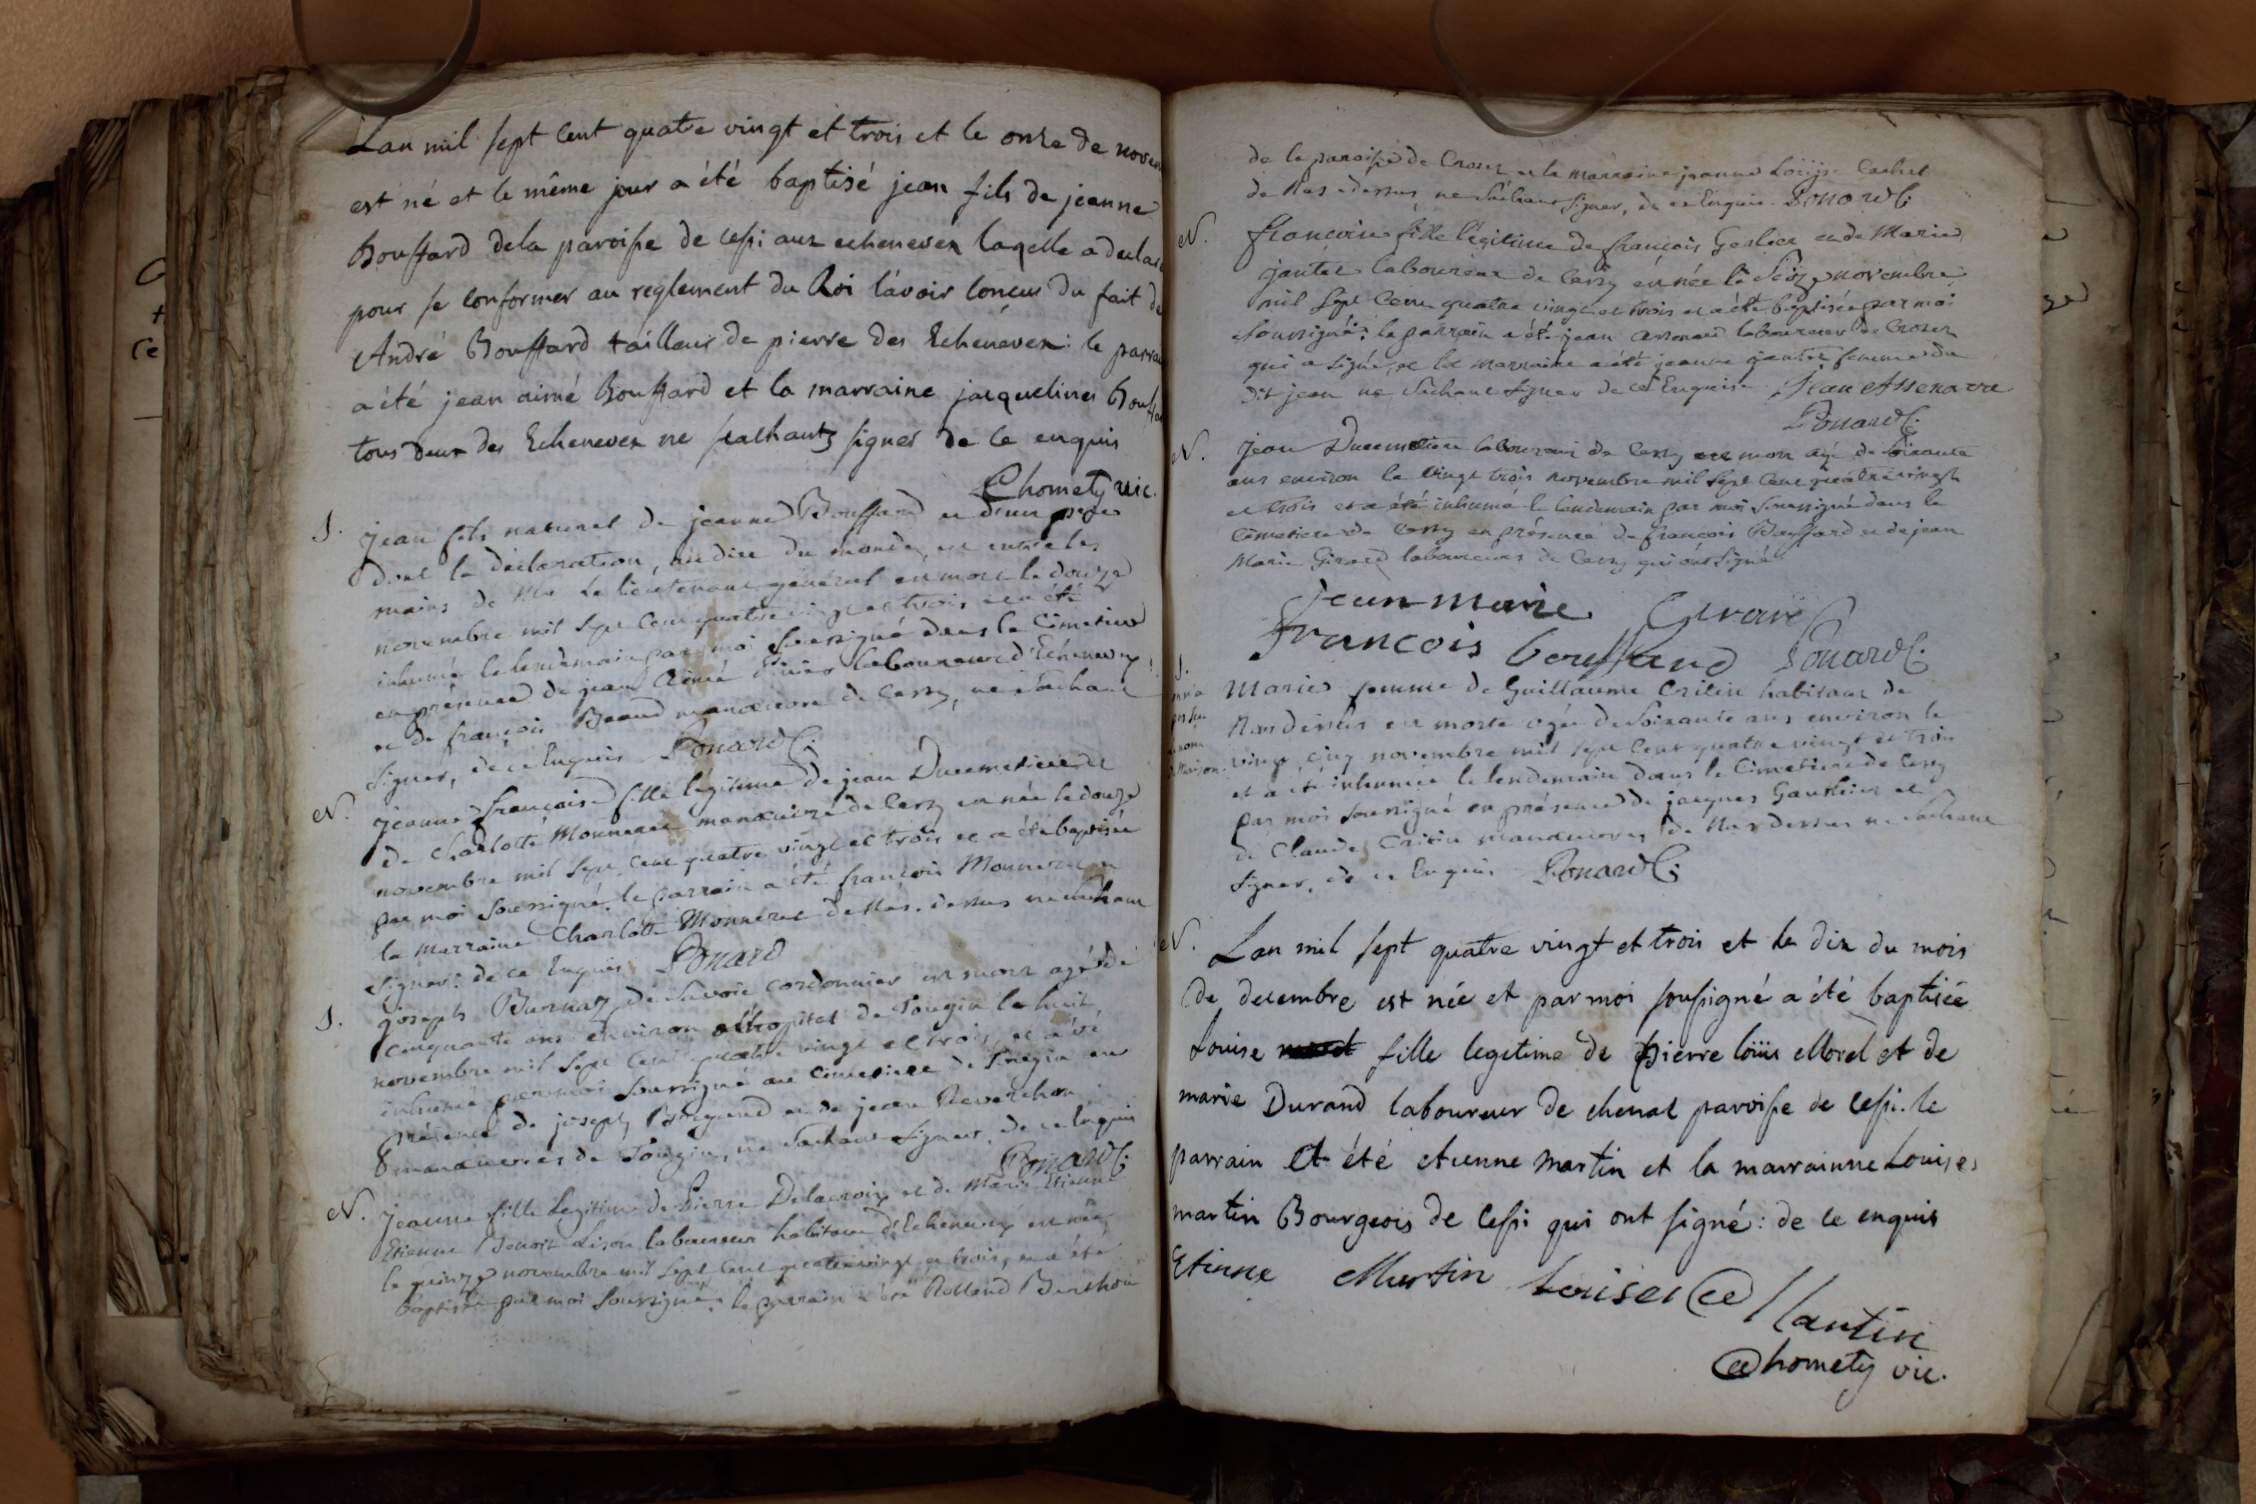 Lan mil sept cent quatre vingt et trois et le onze de novem
est né et le même jour a été baptisé jean fils de jeanne
Bouffard dela paroisse de cessi aux echenevex laqelle a declar
pour se conformer au reglement du Roi l'avoir concus du fait de
André Bouffard tailleur de pierre des Echenevex: le parra
a été jean aimé Bouffard et la marraine jacqueline Bouffar
tous deux des Echenevex ne scachants signer de ce enquis
Chomety vic.
J. jean fils naturel de jeanne Bouffard et d'un père
dont la déclaration, au dire du monde, est entre les
mains de Mr le lieutenant général est mort le douze
novembre mil sept cent quatre vingt et trois et a été
inhumé le lendemain par moi soussigné dans le cimetiere
en présence de jean Aimé laboureur d'Echenevex
et de françois Beaud manoeuvre de Cessy, ne sachant
signer, de ce Enquis Ponard C.
N. jeanne françoise fille légitime de jean Ducimetiere et
de Charlotte Monneret manoeuvre de Cessy est née le douze
novembre mil sept cent quatre vingt et trois et a été baptisée
par moi soussigné. le parrain a été françois Monneret et
la marraine Charlotte Monneret de Nas-dessus ne sachant
signer: de ce Enquis Ponard
J. joseph Burnaz de Savoie cordonnier est mort agé de
cinquante ans environ à l'hopital de Tougin le huit
novembre mil sept cent quatre vingt et trois, et a été
inhumé par moi soussigné au cimetiere de Tougin en
présence de joseph et de jean Reverchon
manoeuvres de Tougin, ne sachant signer, de ce Enquis
Ponard C.
N. jeanne fille légitime de Pierre Delacroix et de Marie Etienne
Etienne Benoit laboureur habitant d'Echenevex est née
le quinze novembre mil sept cent quatre vingt et trois, et a été
baptisée par moi soussigné. le parrain a été Rolland Berthou
de la paroisse de Crozet et la marraine jeanne Louïse Cachet
de Nas-dessus, ne sachant signer, de ce Enquis. Ponard C.
N. francoise fille légitime de françois Gerlier et de Marie
jantet laboureur de Cessy est née le seize novembre
mil sept cent quatre vingt et trois et a été baptisée par moi
soussigné: le parrain a été jean laboureur de Crozet
qui a signé, et la marraine a été jeanne jantet femme du
dit jean ne sachant signer de ce Enquise. jean Assenare
Ponard C.
N. jean Ducimetiere laboureur de Cessy est mort agé de soixante
ans environ le vingt trois novembre mil sept cent quatre vingt
et trois et a été inhumé le lendemain par moi soussigné dans le
cimetiere de Cessy en présence de françois Bouffard et de jean
Marie Girard laboureurs de Cessy qui ont signé
jean marie Girard
francois bouffard Ponard C.
J. Marie femme de Guillaume Critin habitant de
Nas dessus est morte agée de soixante ans environ le
vingt cinq novembre mil sept cent quatre vingt et trois
et a été inhumée le lendemain dans le Cimetiere de Cessy
par moi soussigné en présence de jacques Gauthier et
de Claude Critin manoeuvres de Nas dessus ne sachant
signer, de ce Enquis Ponard C.
N. Lan mil sept quatre vingt et trois et le dix du mois
de decembre est née et par moi soussigné a été baptisée
Louise fille legitime de Pierre loüis Morel et de
marie Durand laboureur de chenal paroisse de cessi. le
parrain et été etienne martin et la marrainne Louise
martin Bourgeois de Cessi qui ont signé: de ce enquis
Etienne Martin Louise Martin
Chomety vic.